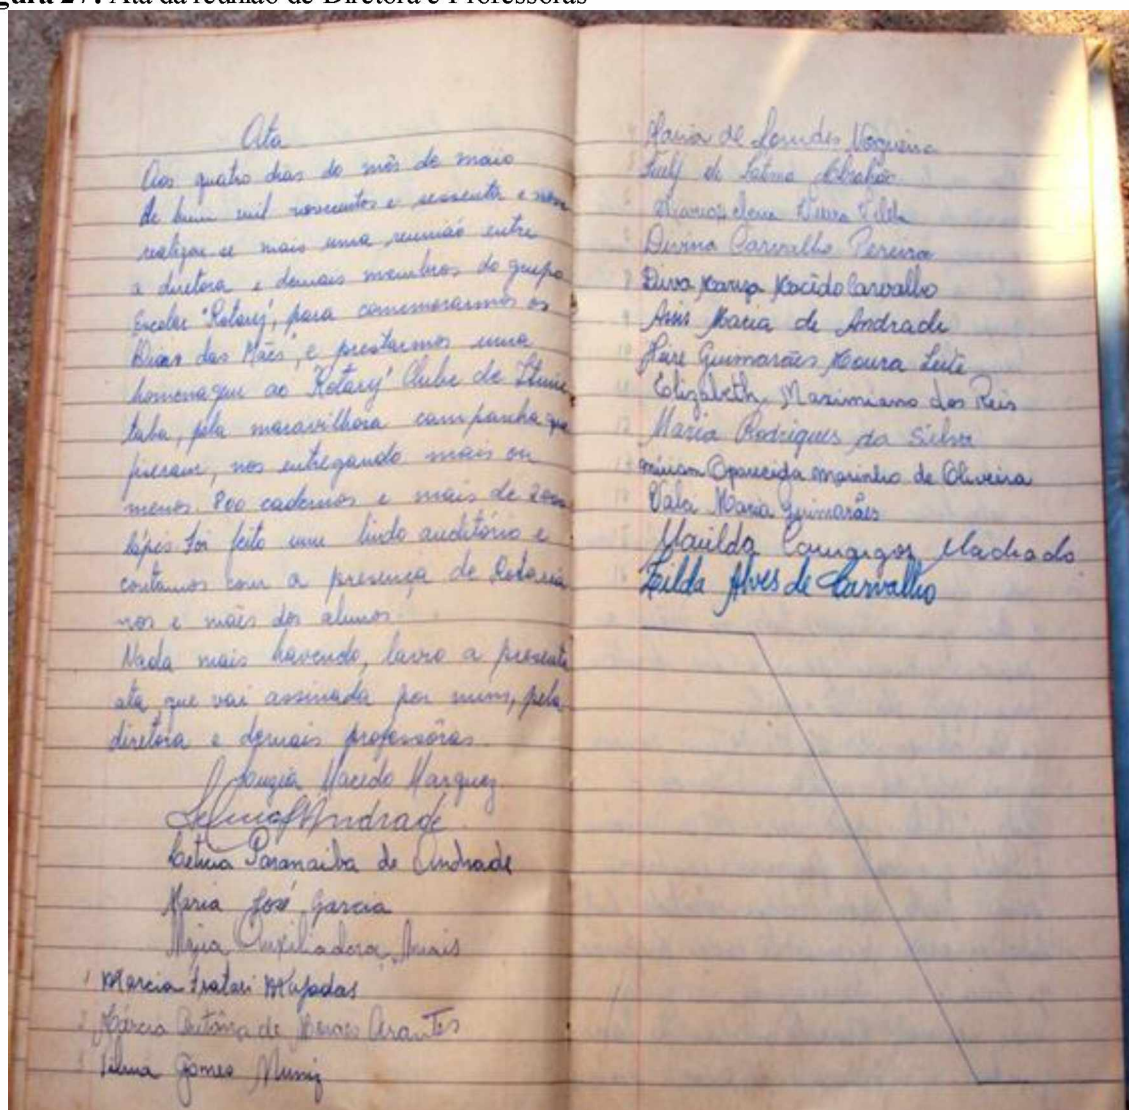 gura 27: Ata da reunião de Diretora e Professoras
Ata
Aos quatro dias do mês de maio
de hum mil novecentos e sessenta e nove
realizou-se mais uma reunião entre
a diretora e demais membros do grupo
Escolar "Rotary", para comemorarmos os
Dias das Mães, e prestarmos uma
homenagem ao "Rotary" Clube de Ituiu
taba, pela maravilhosa campanha que
fizeram, nos entregando mais ou
menos 800 cadernos e mais de 2000
lápes. Foi feito um lindo auditório e
contamos com a presença de Rotaria
nos e mães dos alunos.
Nada mais havendo, lavro a presente
ata que vai assinada por mim, pela
diretora e demais professôras.
Macedo Marquez
Andrade
Paranaiba de Andrade
Maria José Garcia
Auxiliadora
1 Marcia Fratari Majadas
2 Márcia Antônia de Moraes Arantes
3 Gomes Muniz
Maria de Lourdes Nogueira
de Fátima Abrahão
Vilela
Divina Carvalho Pereira
Diva Macêdo Carvalho
Maria de Andrade
Guimarães Moura Leite
Elizabeth Maximiano dos Reis
Maria Rodrigues da Silva
Miriam Aparecida Marinho de Oliveira
Maria Guimarães
Marilda Camargos Machado
Zilda Alves de Carvalho